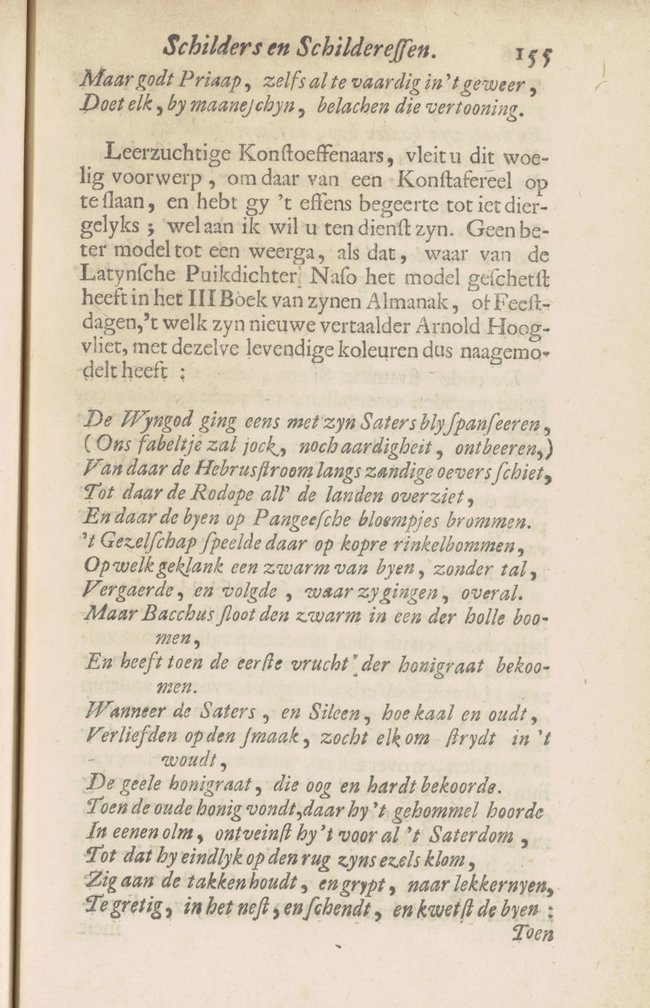 Schilders en Schilderessen. 155
Maar godt Priaap, zelfs al te vaardig in 't geweer,
Doet elk, by maaneschyn, belachen die vertooning.
Leerzuchtige Konstoeffenaars, vleit u dit woe-
lig voorwerp, om daar van een Konstafereel op
te slaan, en hebt gy 't effens begeerte tot iet dier-
gelyks; welaan ik wil u ten dienst zyn. Geen be-
ter model tot een weerga, als dat, waar van de
Latynsche Puikdichter Naso het model geschetst
heeft in het III Boek van zynen Almanak, of Feest-
dagen, 't welk zyn nieuwe vertaalder Arnold Hoog-
vliet, met dezelve levendige koleuren dus naagemo-
delt heeft:
De Wyngod ging eens met zyn Saters bly spanseeren,
(Ons fabeltje zal jock, noch aardigheit, ontbeeren,)
Van daar de Hebrusstroom langs zandige oevers schiet,
Tot daar de Rodope all' de landen overziet,
En daar de byen op Pangeesche bloempjes brommen.
't Gezelschap speelde daar op kopre rinkelbommen,
Op welk geklank een zwarm van byen, zonder tal,
Vergaerde, en volgde, waar zy gingen, overal.
Maar Bacchus sloot den zwarm in een der holle boo-
men,
En heeft toen de eerste vrucht der honigraat bekoo-
men.
Wanneer de Saters, en Sileen, hoe kaal en oudt,
Verliefden op den smaak, zocht elk om strydt in 't
woudt,
De geele honigraat, die oog en hardt bekoorde.
Toen de oude honig vondt, daar hy 't gehommel hoorde
In eenen olm, ontveinst hy 't voor al 't Saterdom,
Tot dat hy eindlyk op den rug zyns ezels klom,
Zig aan de takken houdt, en grypt, naar lekkernyen,
Te gretig, in het nest, en schendt, en kwetst de byen:
Toen